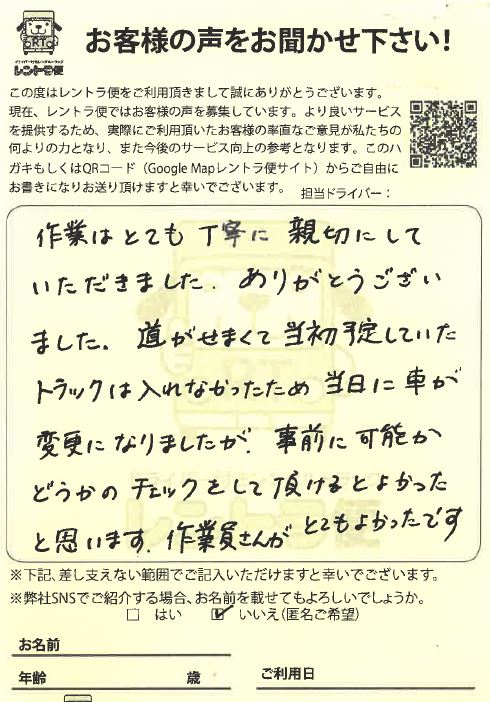 RT
ドライバー付きレンタルトラック
レントラ便
お客様の声をお聞かせ下さい!
この度はレントラ便をご利用頂きまして誠にありがとうございます。
現在、レントラ便ではお客様の声を募集しています。より良いサービス
を提供するため、実際にご利用頂いたお客様の率直なご意見が私たちの
何よりの力となり、また今後のサービス向上の参考となります。このハ
ガキもしくはQRコード（Google Mapレントラ便サイト）からご自由に
お書きになりお送り頂けますと幸いでございます。
担当ドライバー：
作業はとても丁寧に親切にして
いただきました。ありがとうござい
ました。道がせまくて当初予定していた
トラックは入れなかったため当日に車が
変更になりましたが、事前に可能か
どうかのチェックをして頂けるとよかった
と思います。作業員さんがとてもよかったです
レントラ便
※下記、差し支えない範囲でご記入いただけますと幸いでございます。
※弊社SNSでご紹介する場合、お名前を載せてもよろしいでしょうか。
□ はい ☑ いいえ(匿名ご希望)
お名前
年齢 歳 ご利用日